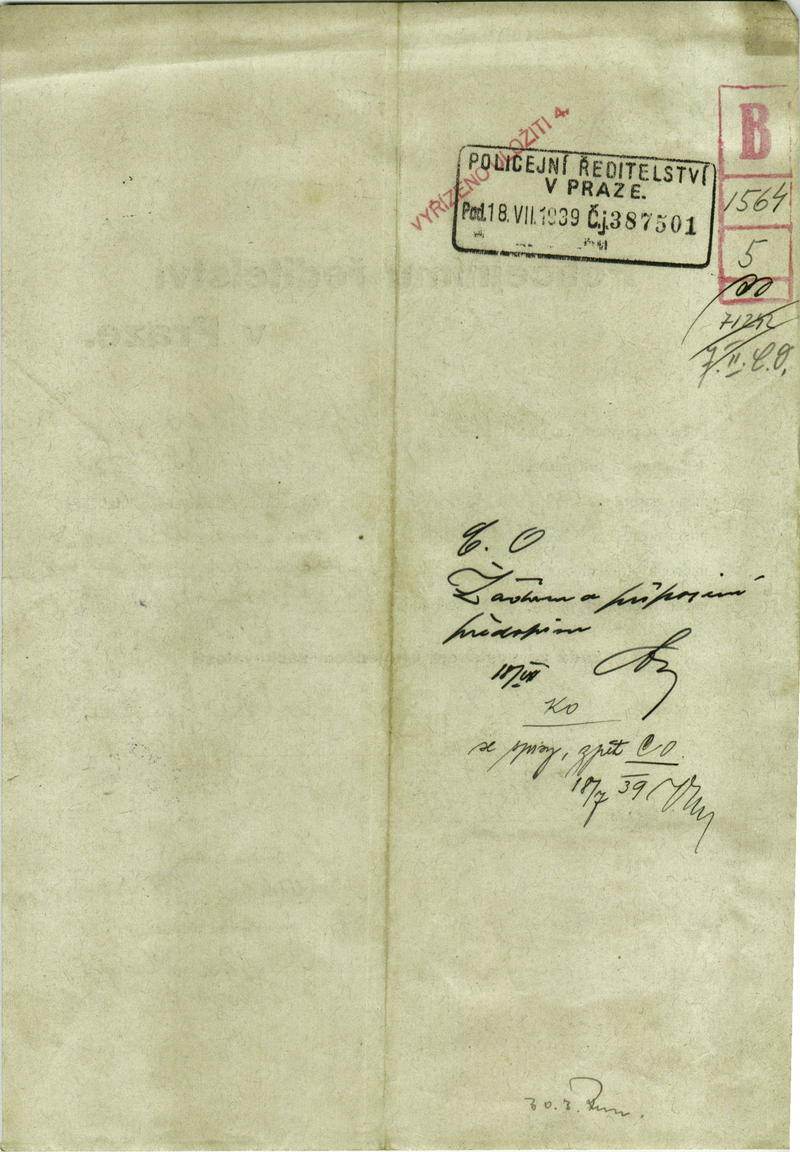 VYŘÍZENO ULOŽITI 4.
POLICEJNÍ ŘEDITELSTVÍ
V PRAZE.
Pod. 18. VII. 1939 Č.j. 387501
B
1564
5
71242
7. II. C.O.
C. O
Žádám o připojení
předspisu
18/VII
KO
se spisy, zpět CO.
18/7 39
30.3.